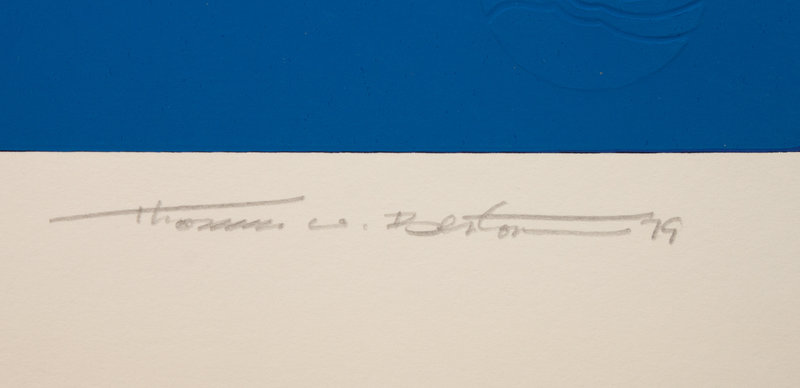 Thomas W. Benton 79